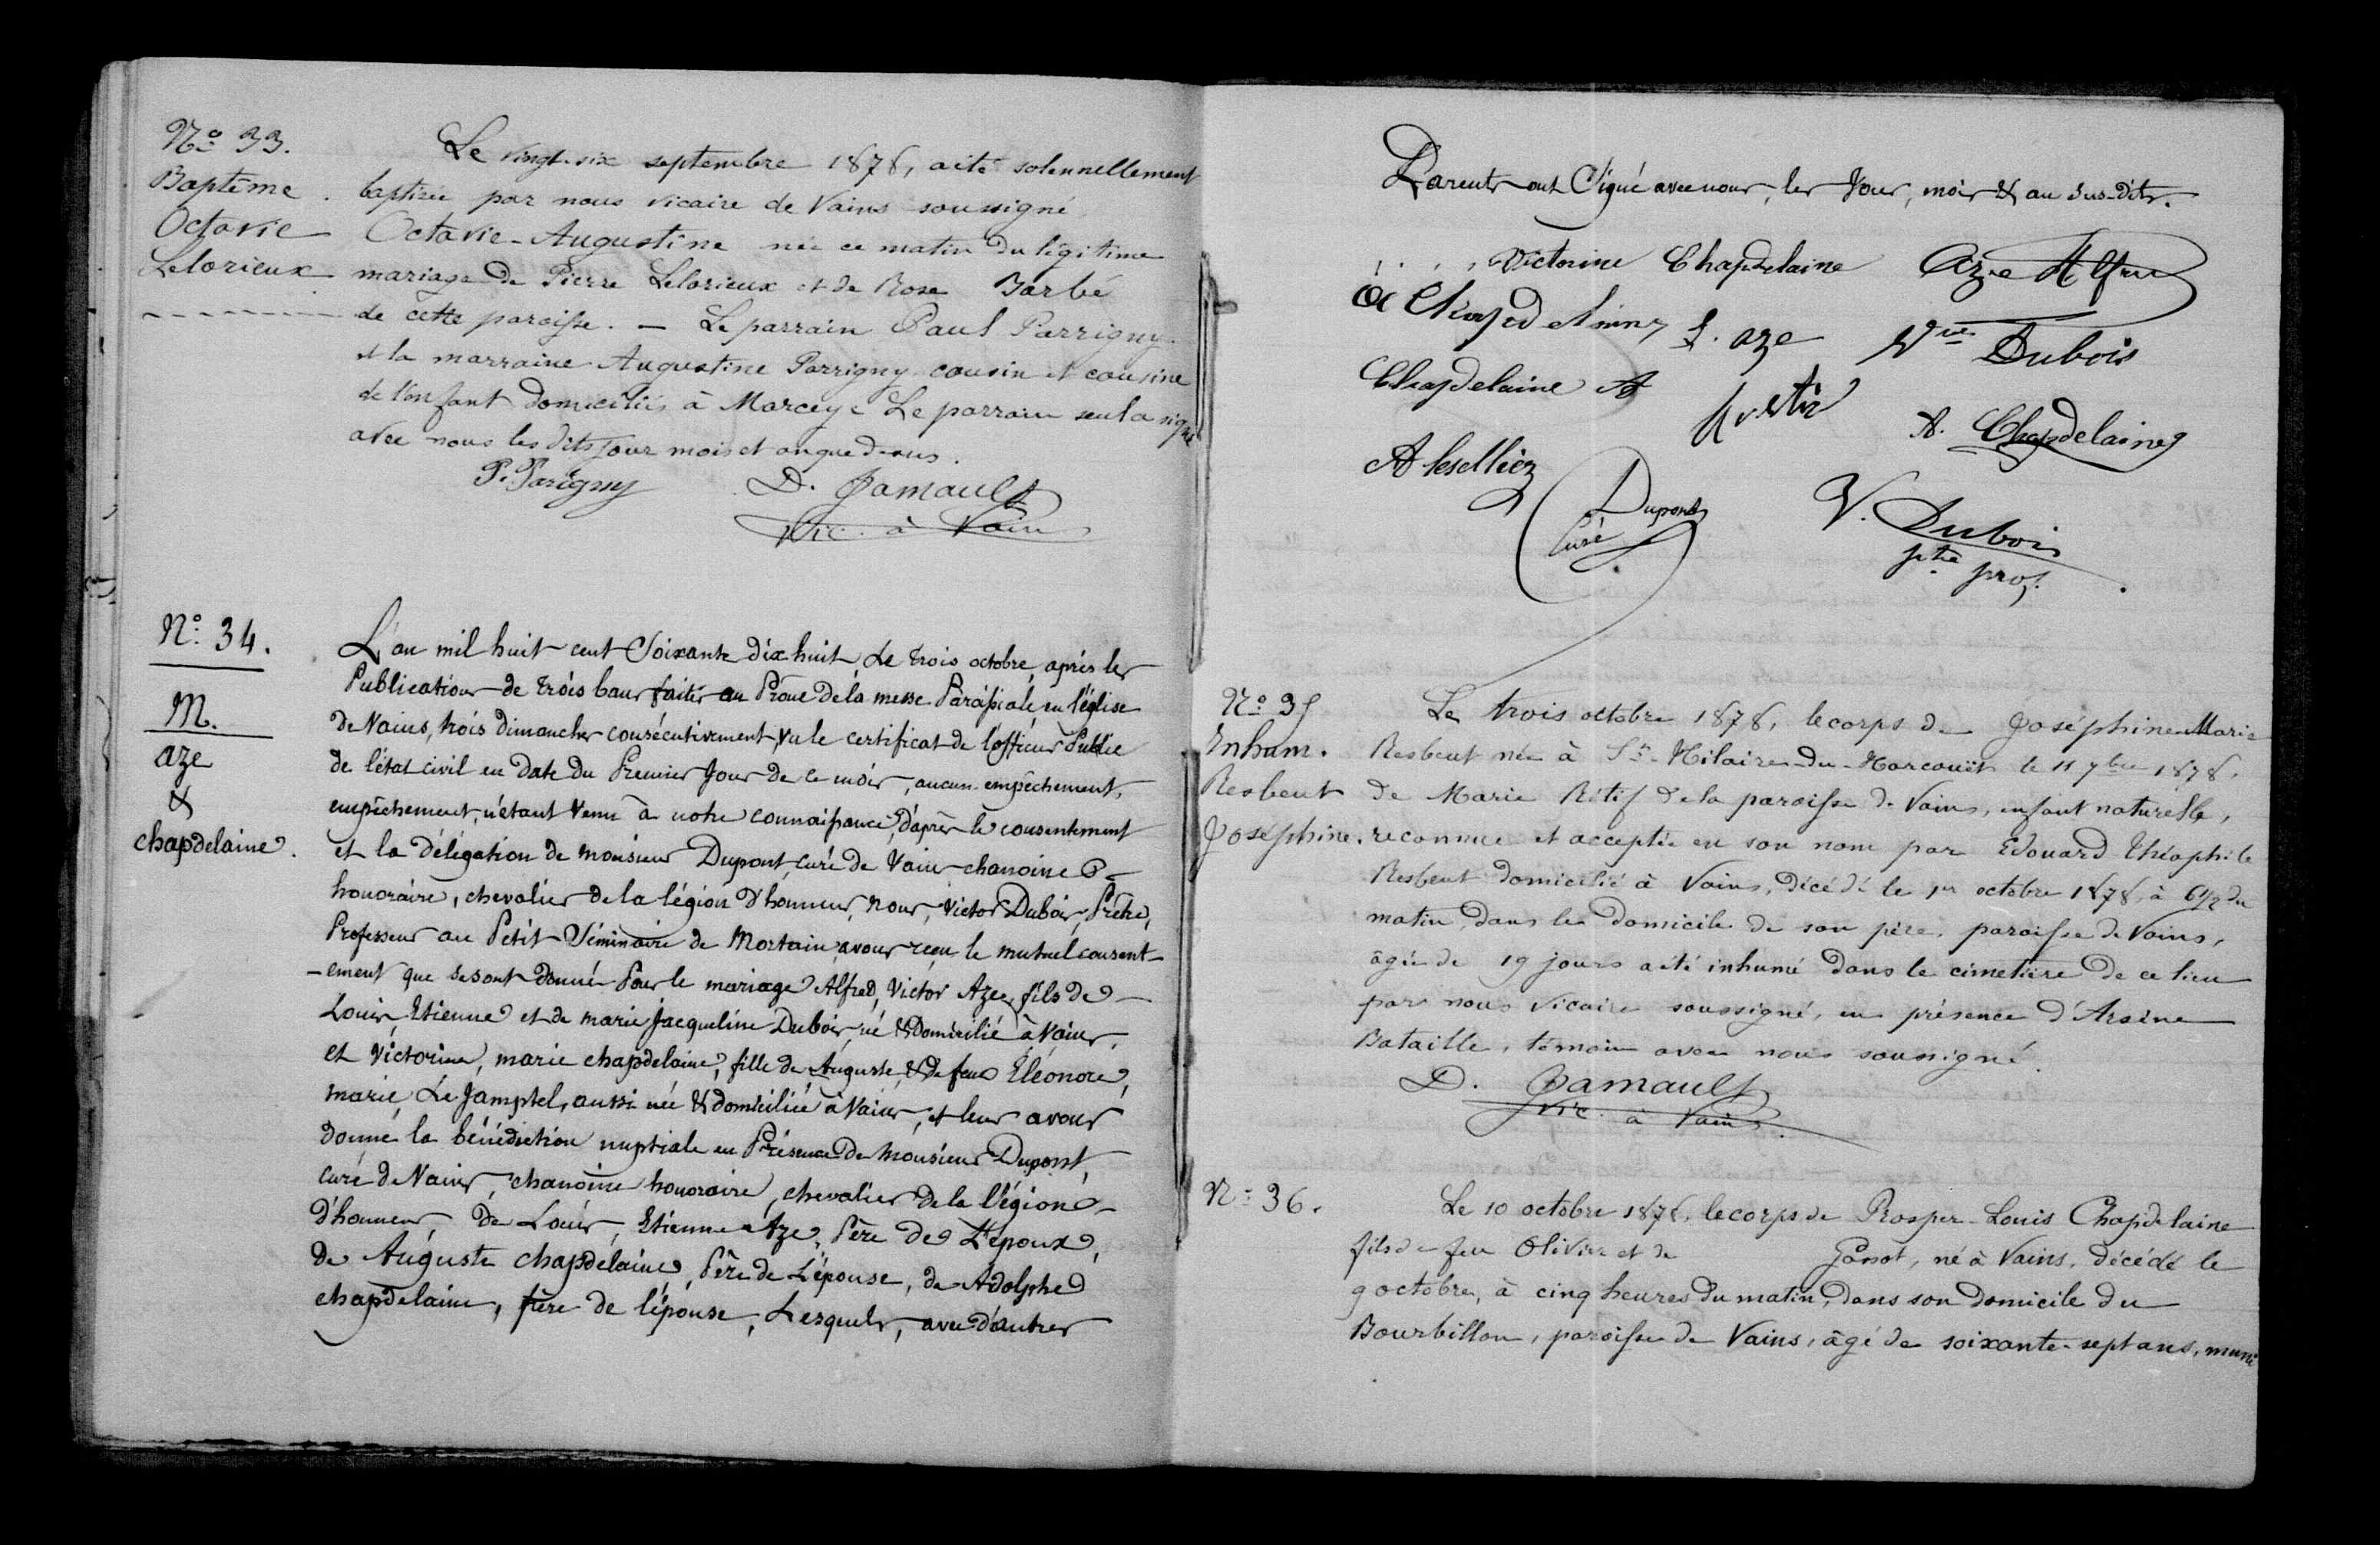 No 33.
Baptême.
Octavie
Lelorieux
Le vingt-six septembre 1878, a été solennellement
baptisée par nous vicaire de Vains soussigné
Octavie-Augustine née ce matin du légitime
mariage de Pierre Lelorieux et de Rose Barbé
de cette paroisse. — Le parrain Paul Parrigny
et la marraine Augustine Parrigny cousin et cousine
de l'enfant domiciliés à Marcey. Le parrain seul a signé
avec nous les dits jour mois et an que dessus.
P. Parigny D. Jamault
Vic. à Vain
No 34.
M.
aze
&
chapdelaine.
L'an mil huit cent soixante dix huit, Le trois octobre, après les
Publications de trois bans faites au Prône de la messe Paroissiale en l'église
de Vains, trois dimanches consécutivement, vu le certificat de l'officier Public
de l'état civil en date du Premier Jour de ce mois, aucun empêchement,
empêchement, n'étant venu à notre connaissance, d'après le consentement
et la délégation de monsieur Dupont, curé de Vains chanoine
honoraire, chevalier de la légion d'honneur, nous, Victor Dubois, Prêtre,
Professeur au Petit-Séminaire de Mortain, avons reçu le mutuel consent-
-ement que se sont donné Pour le mariage Alfred, Victor Aze, fils de
Louis Etienne et de marie Jacqueline Dubois, né & Domicilié à Vains,
et Victorine, marie chapdelaine, fille de Auguste, & de feue Eléonore,
marie, Le Jamptel, aussi née & domiciliée à Vains, et leur avons
donné la bénédiction nuptiale en Présence de Monsieur Dupont,
curé de Vains, chanoine honoraire, chevalier de la légion
d'honneur, de Louis, Etienne Aze, Père de L'époux,
de Auguste chapdelaine, Père de L'épouse, de Adolphe
chapdelaine, frère de l'épouse, Lesquels, avec d'autres
Parents ont Signé avec nous, les Jour, mois & an sus-dits.
Victorine Chapdelaine Aze Alfred
L. aze Vve Dubois
Chapdelaine A
A. Chapdelaine
Dupont
Curé
V. Dubois
ptre prof.
No 35
Inhum.
Resbeut
Joséphine.
Le trois octobre 1878, le corps de Joséphine Marie
Resbeut née à St-Hilaire-du-Harcouët le 11 7bre 1878,
de Marie Rétif de la paroisse de Vains, enfant naturelle,
reconnue et acceptée en son nom par Edouard Théophile
Resbeut domicilié à Vains, décédé le 1er octobre 1878, à 6 1/2 du
matin, dans le domicile de son père, paroisse de Vains,
âgée de 19 jours a été inhumé dans le cimetière de ce lieu
par nous vicaire soussigné, en présence d'Arsène
Bataille, témoin avec nous soussigné.
D. Jamault
vic. à Vains.
No 36.
Le 10 octobre 1878, le corps de Prosper-Louis Chapdelaine
fils de feu Olivier et de Gonot, né à Vains, décédé le
9 octobre, à cinq heures du matin, dans son domicile du
Bourbillon, paroisse de Vains, âgé de soixante-sept ans, muni